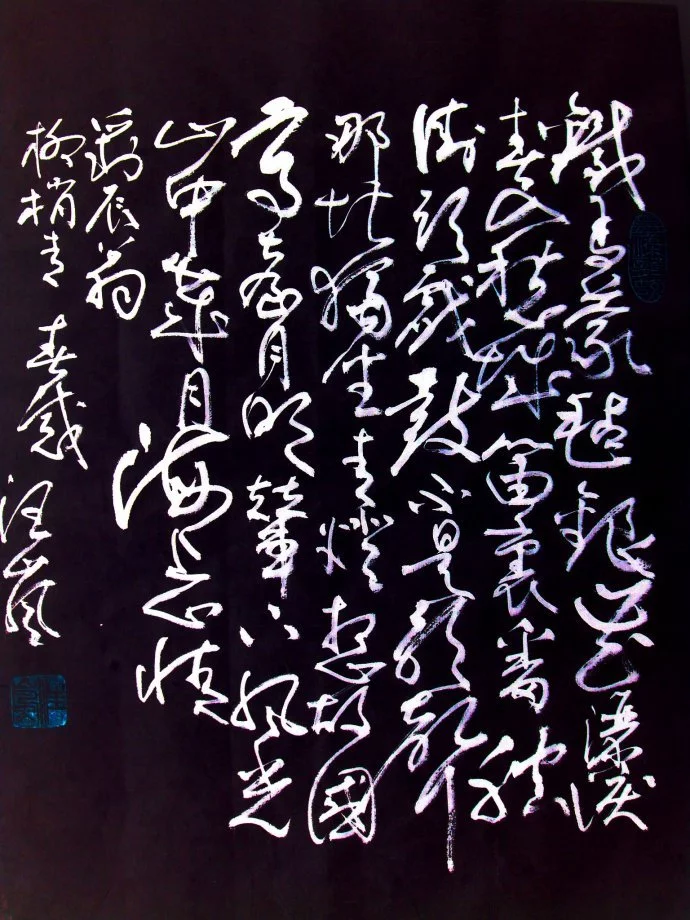 鐵馬蒙氈銀花灑淚
春入愁城笛裏番腔
街頭戲鼓不是歌聲
那堪獨坐青燈想故國
高臺月明輦下風光
山中歲月海上心情
劉辰翁
柳梢青 春感